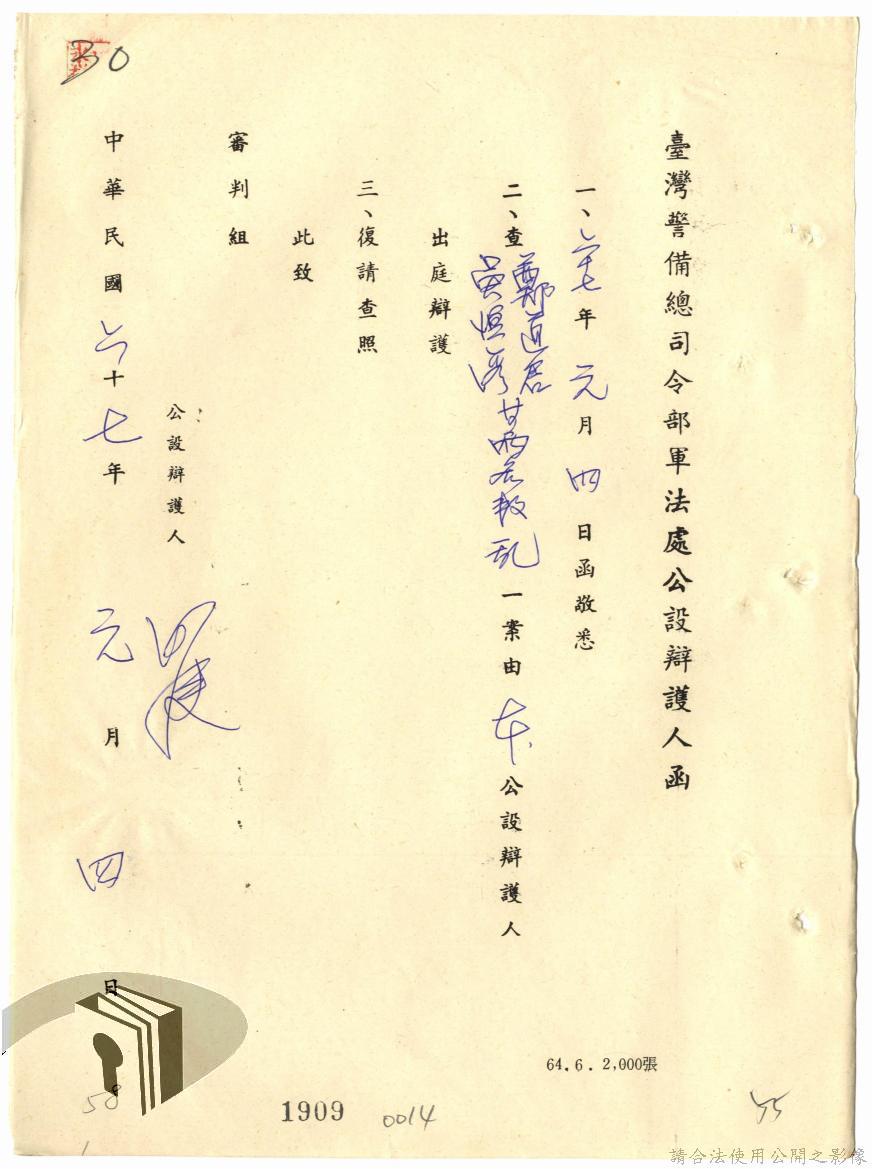 臺灣警備總司令部軍法處公設辯護人函
一、六十七年元月四日函敬悉
二、查鄭道君 黃恒 甘 君叛乱一案由本公設辯護人
出庭辯護
三、復請查照
此致
審判組
公設辯護人
中華民國六十七年元月四日
64.6.2,000張
30
58
1909
0014
55
請合法使用公開之影像